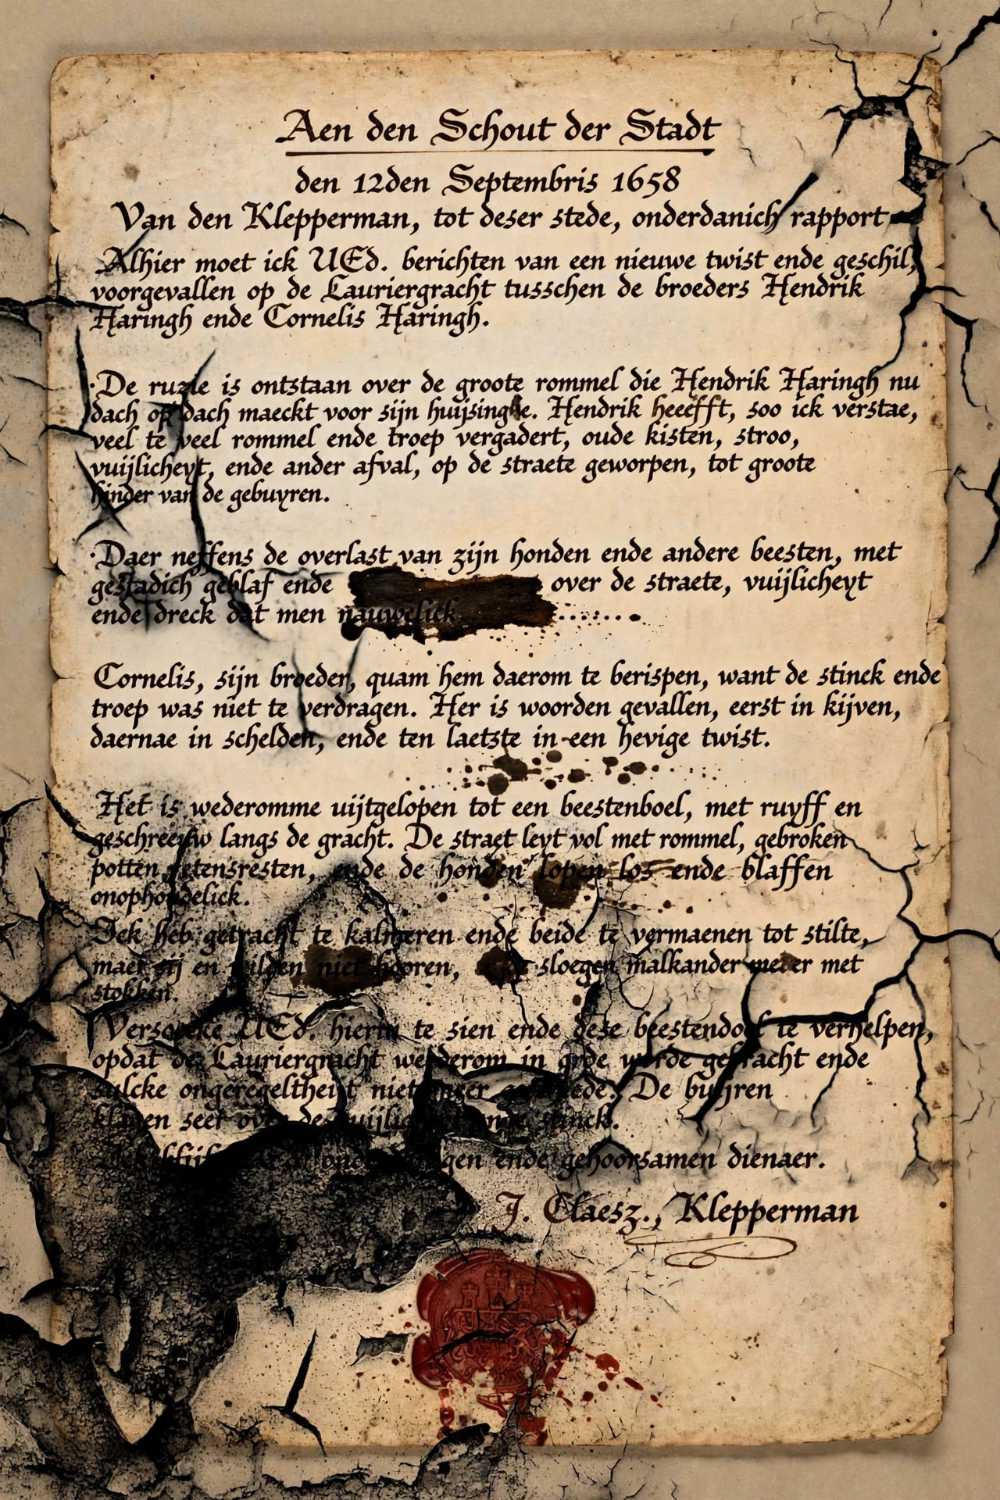 Aen den Schout der Stadt
den 12den Septembris 1658
Van den Klepperman, tot deser stede, onderdanich rapport
Alhier moet ick UEd. berichten van een nieuwe twist ende geschil,
voorgevallen op de Lauriergracht tusschen de broeders Hendrik
Haringh ende Cornelis Haringh.
De ruzie is ontstaan over de groote rommel die Hendrik Haringh nu
dach op dach maeckt voor sijn huijsinghe. Hendrik heeefft, soo ick verstae,
veel te veel rommel ende troep vergadert, oude kisten, stroo,
vuijlicheyt, ende ander afval, op de straete geworpen, tot groote
hinder van de gebuyren.
Daer neffens de overlast van zijn honden ende andere beesten, met
gestadich geblaf ende over de straete, vuijlicheyt
ende dreck dat men nauwelick
Cornelis, sijn broeder, quam hem daerom te berispen, want de stinck ende
troep was niet te verdragen. Her is woorden gevallen, eerst in kijven,
daernae in schelden, ende ten laetste in een hevige twist.
Het is wederomme uijtgelopen tot een beestenboel, met ruyff en
geschreeuw langs de gracht. De straet leyt vol met rommel, gebroken
potten, etensresten, ende de honden lopen los ende blaffen
onophoudelick.
Ick heb getracht te kalmeren ende beide te vermaenen tot stilte,
maer sij en wilden niet hooren, sloegen malkander met
stokken.
Versoecke UEd. hierin te sien ende dese te verhelpen,
opdat de Lauriergracht wederom in orde werde gebracht ende
sulcke ongeregeltheijt niet meer De buyren
klagen seer over de stinck.
ende gehoorsamen dienaer.
J. Claesz., Klepperman